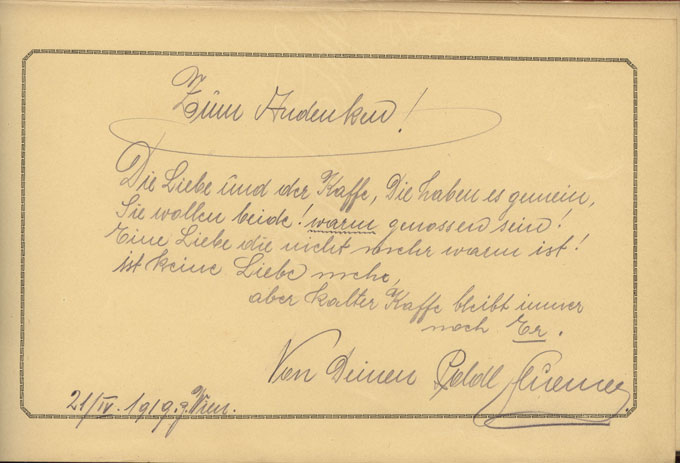 Zum Andenken!
Die Liebe und der Kaffe, Die haben es gemein,
Sie wollen beide! warm genossen sein!
Eine Liebe die nicht mehr warm ist!
ist keine Liebe mehr,
aber kalter Kaffe bleibt immer
noch Er.
Von Deinen Poldl
21/IV. 1919. Wien.